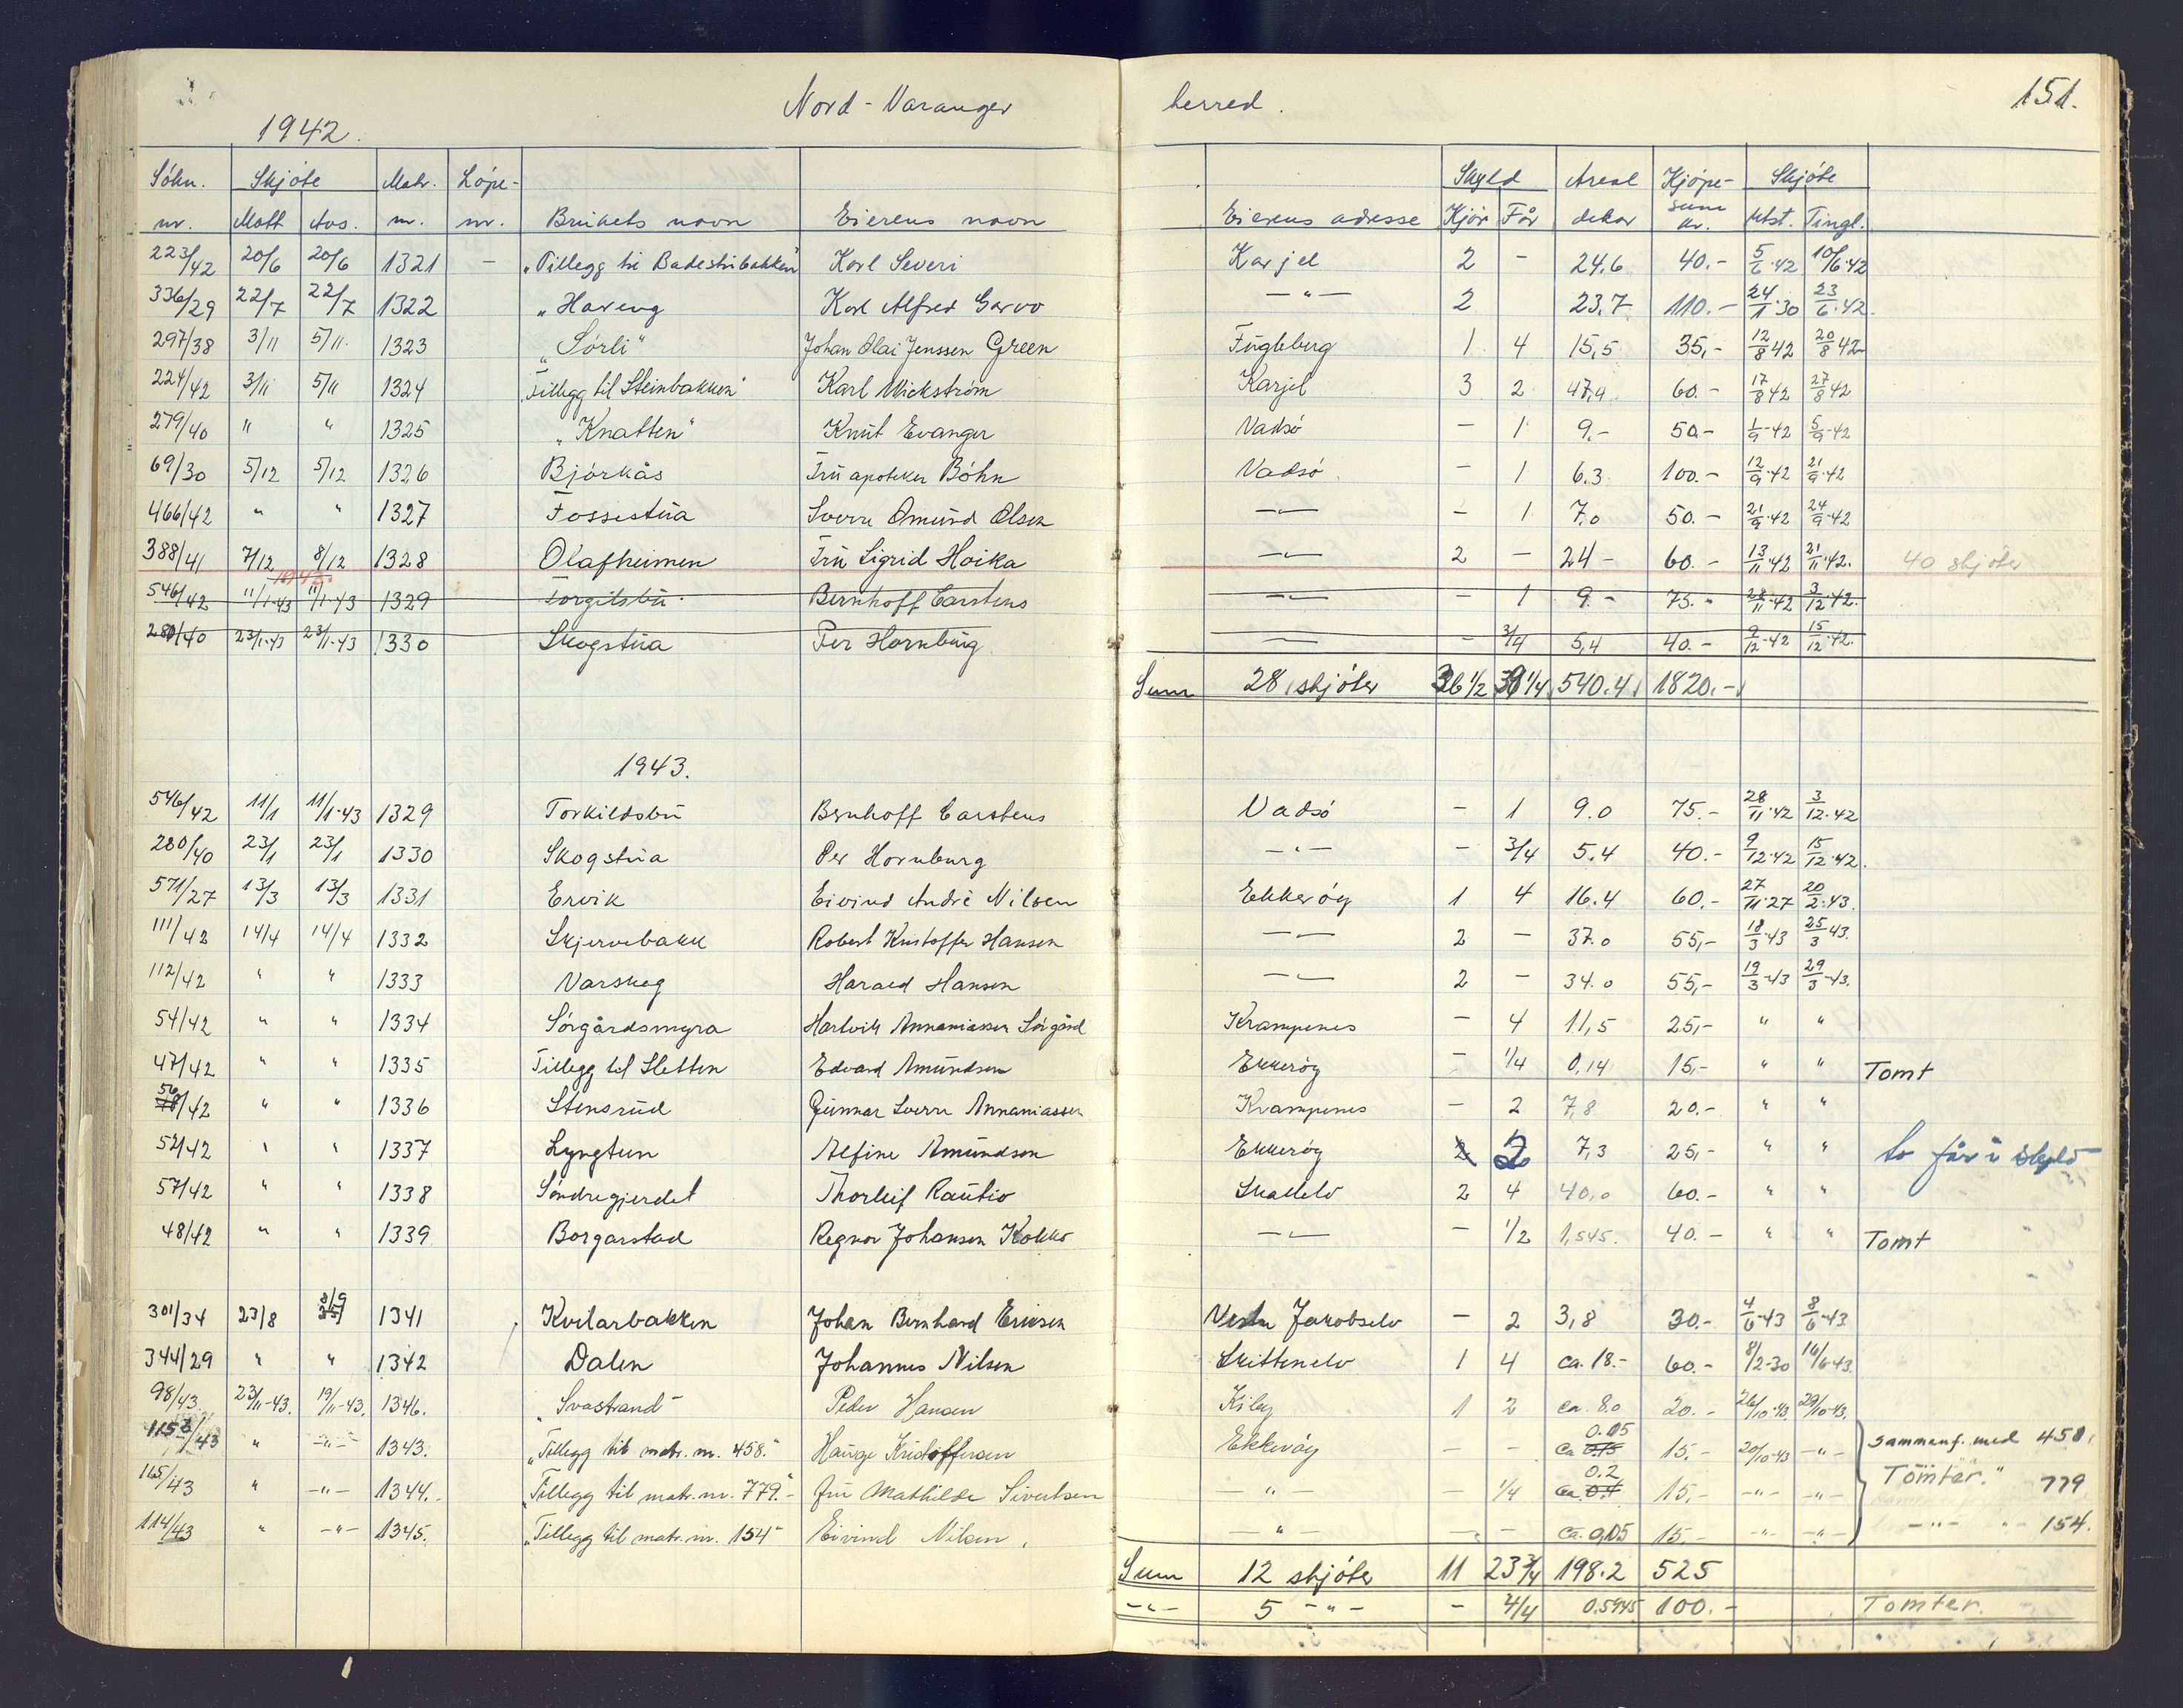 Nord-Varanger herred. 151.
1942.
Sökn. nr. Skjöte Mott Avs. Matr. nr. Löpe-nr. Brukets navn Eierens navn Eierens adresse Skyld Kjör Får Areal dekar Kjöpesum kr. Skjöte Utst. Tingl.
223/42 20/6 20/6 1321 - Karl Severi Karjel 2 - 24.6 40.- 5/6-42 10/6-42
336/29 22/7 22/7 1322 „Hareng Karl Alfred Garvo -"- 2 23,7 110.- 24/1-30 23/6-42.
297/38 3/11 5/11. 1323 „Sörli" Johan Olai Jenssen Green Fugleberg 1 4 15,5 35,- 12/8 42 20/8 42
224/42 3/11 5/11 1324 „Tillegg til Steinbakken" Karl Wickström Karjel 3 2 47,4 60.- 17/8 42 27/8 42
279/40 " " 1325 „Knatten" Knut Evanger Vadsö - 1 9.- 50.- 1/9-42 5/9-42
69/30 5/12 5/12 1326 Bjórkås Fru apoteker Böhn Vadsö - 1 6.3 100.- 12/9-42 21/9-42
466/42 " " 1327 Fossestua Sverre Omund Olsen -"- - 1 7.0 50.- 21/9-42 24/9-42
388/41 7/12 8/12 1328 Olafheimen Fru Sigrid Hoika -"- 2 - 24- 60.- 13/11-42 21/11-42. 40 skjöter
1943.
546/42 11/1-43 11/1-43 1329 Torgilsbu Bernhoff Carstens -"- - 1 9.- 75.- 28/11-42 3/12-42.
280/40 23/1-43 23/1-43 1330 Skogstua Per Hornburg -"- - 3/4 5,4 40.- 9/12-42 15/12-42.
Sum 28 skjöter 36 1/2 39 1/4 540.4 1820.-
1943.
546/42 11/1 11/1-43 1329 Torkildsbu Bernhoff Carstens Vadsö - 1 9.0 75.- 28/11-42 3/12-42
280/40 23/1 23/1 1330 Skogstua Per Hornburg -"- - 3/4 5.4 40.- 9/12-42 15/12-42.
571/27 13/3 13/3 1331 Ervik Eivind Andrè Nilsen Ekkeröy 1 4 16.4 60.- 27/11-27 20/2-43.
111/42 14/4 14/4 1332 Skjervebakk Robert Kristoffer Hansen -"- 2 - 37.0 55,- 18/3-43 25/3 43.
112/42 " " 1333 Varskog Harald Hansen -"- 2 - 34.0 55,- 19/3-43 29/3-43.
54/42 " " 1334 Sörgårdsmyra Hartvik Annaniassen Sörgård Krampenes - 4 11,5 25,- " "
47/42 " " 1335 Tillegg til Sletten Edvard Amundsen Ekkeröy - 1/4 0,14 15,- " " Tomt
56/42 " " 1336 Stensrud Gunnar Sverre Annaniassen Krampenes - 2 7,8 20.- " "
52/42 " " 1337 Lyngtun Alfine Amundsen Ekkeröy 2 2 7,3 25,- " " to får i skyld
57/42 " " 1338 Söndregjerdet Thorleif Rautio Skallelv 2 4 40,0 60.- " "
48/42 " " 1339 Borgarstad Regnor Johansen Kokko -"- - 1/2 1,545. 40.- " " Tomt
301/34 23/8 3/9 1341 Kvilarbakken Johan Bernhard Eriksen Vestre Jakobselv - 2 3,8 30.- 4/6-43 8/6-43
344/29 " " 1342 Dalen Johannes Nilsen Skittenelv 1 4 ca. 18.- 60.- 8/2-30 16/6-43.
98/43 23/11-43. 19/11-43. 1346. „Svastrand" Peder Hansen Kiby 1 2 ca. 8.0 20.- 26/10-43. 29/10-43.
115/43 " -"- 1343. „Tillegg til matr. nr. 458." Hauge Kristoffersen Ekkeröy - - ca 0.15 0.05 15.- 20/10-43 -"- sammenf. med 458.
165/43 " -"- 1344. „Tillegg til matr. nr. 779." Fru Mathilde Sivertsen -"- - 1/4 ca. 0.4 0.2 15,- -"- -"- Tomter." 779
114/43 " -"- 1345. „Tillegg til matr. nr. 154" Eivind Nilsen. -"- - - ca. 0,05 15.- -"- -"- -"- " 154.
Sum 12 skjöter 11 23 3/4 198.2 525
-"- 5 -"- - 4/4 0.5945 100.- Tomter.